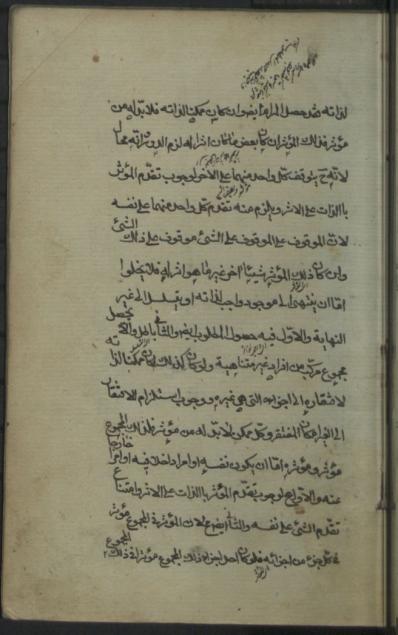 لذاته فقد حصل المرام ايضا وان كان ممكنا لذاته فلا بد له من
مؤثر فذلك المؤثر ان كان بعض ما كان اثرا له لزم الدور وانه محال
لانه ح يتوقف كل واحد منهما على الاخر لوجوب تقدم المؤثر
بالذات على الاثر ويلزم منه تقدم كل واحد منهما على نفسه
لان الموقوف على الموقوف على الشئ موقوف على ذلك الشئ
وان كان ذلك المؤثر شيئا اخر غير ما هو اثر له فلا يخلوا
اما ان ينتهى الى موجود واجب لذاته او يتسلسل الى غير
النهاية والاول فيه حصول المطلوب والثانى باطل والا يحصل
مجموع مركب من افراد غير متناهية ولو كان كذلك لكان ممكنا لذاته
لافتقاره الى اجزائه التى هى غيره ووجوب استلزام الافتقار
الى الغير امكان المفتقر وكل ممكن لا بد له من مؤثر فلذلك المجموع
مؤثر ومؤثره اما ان يكون نفسه او امرا داخلا فيه او امرا خارجا
عنه والاول لوجوب تقدم المؤثر بالذات على الاثر وامتناع
تقدم الشئ على نفسه والثانى لان المؤثر فى المجموع مؤثر
فى كل جزء من اجزائه فلو كان احد اجزاء ذلك المجموع مؤثرا فى ذلك المجموع